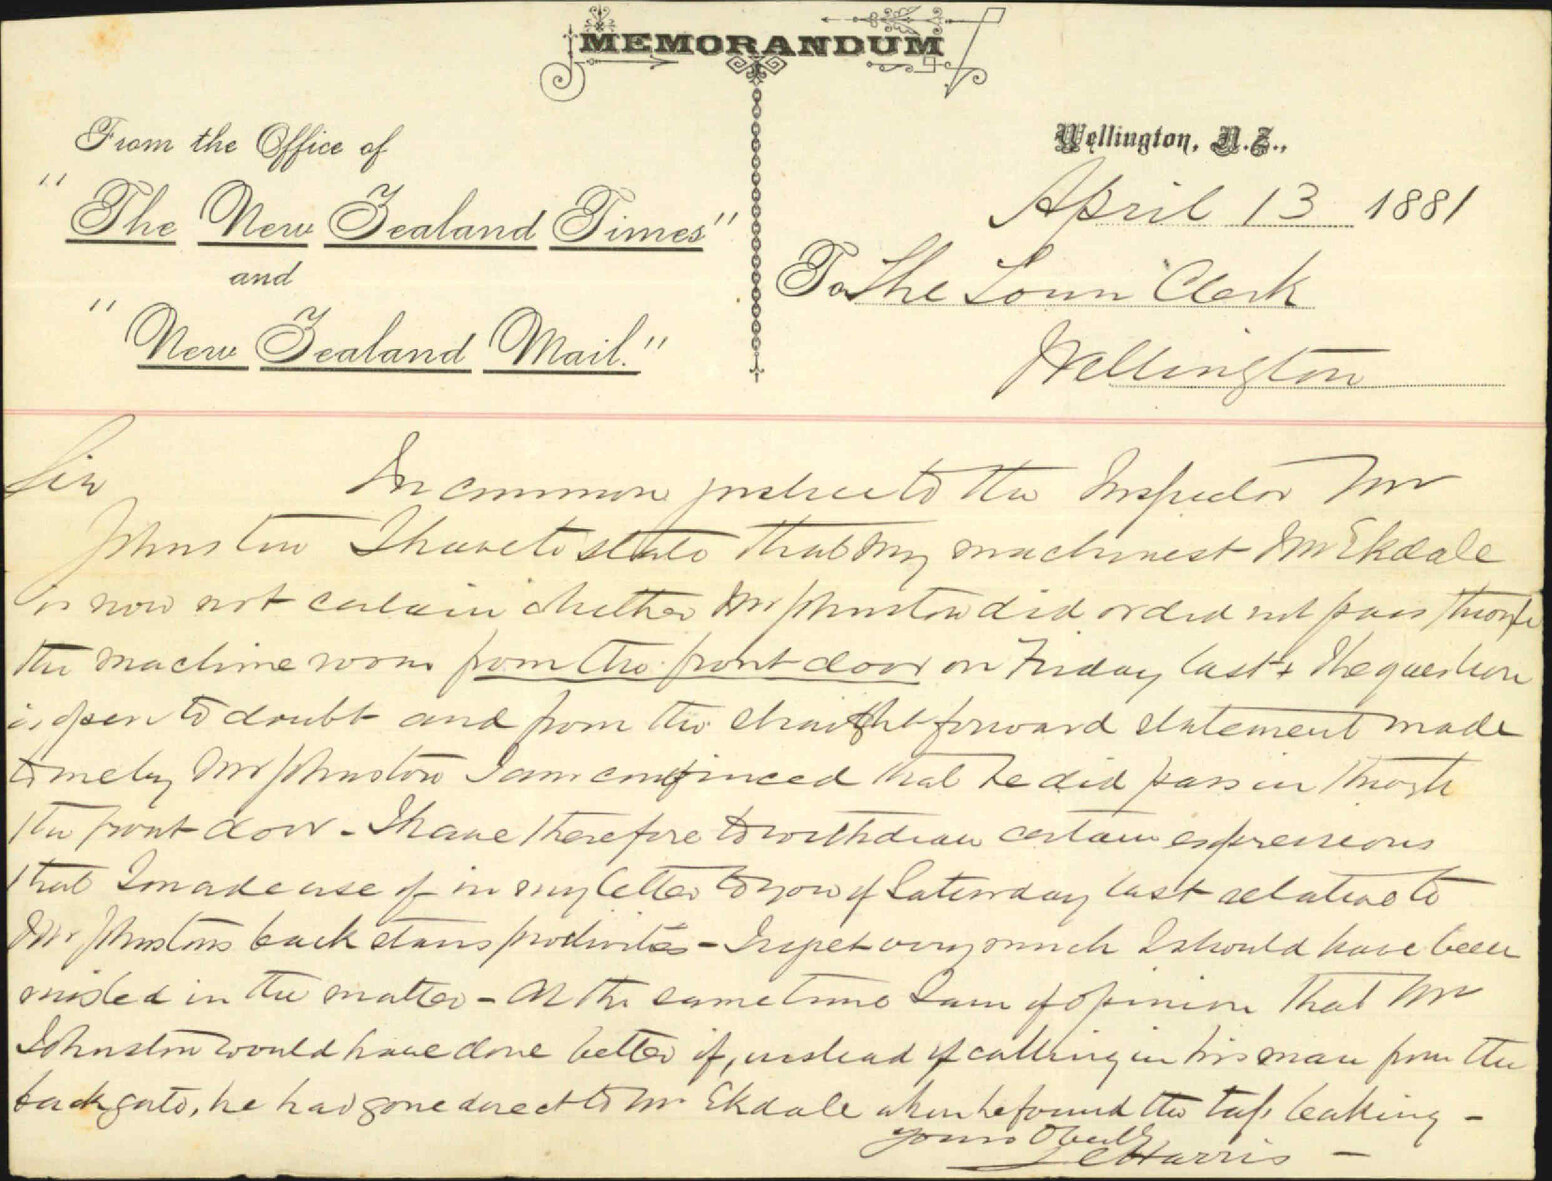 MEMORANDUM
From the Office of
"The New Zealand Times"
and
"New Zealand Mail."
Wellington, N.Z.,
April 13 1881
To The Town Clerk
Wellington
Sir In common justice to the Inspector Mr
Johnston I have to state that my machinest Mr Ekdale
is now not certain whether Mr Johnston did or did not pass through
the machine room from the front door on Friday last & the question
is open to doubt and from the straightforward statement made
to me by Mr Johnston I am convinced that he did pass in through
the front door - I have therefore to withdraw certain expressions
that I made use of in my letter to you of Saturday last relative to
Mr Johnstons back stairs proclivities - I regret very much I should have been
misled in the matter - At the same time I am of opinion that Mr
Johnston would have done better if, instead of calling in his man from the
back gate, he had gone direct to Mr Ekdale when he found the tap leaking -
Yours Obedly
Harris -